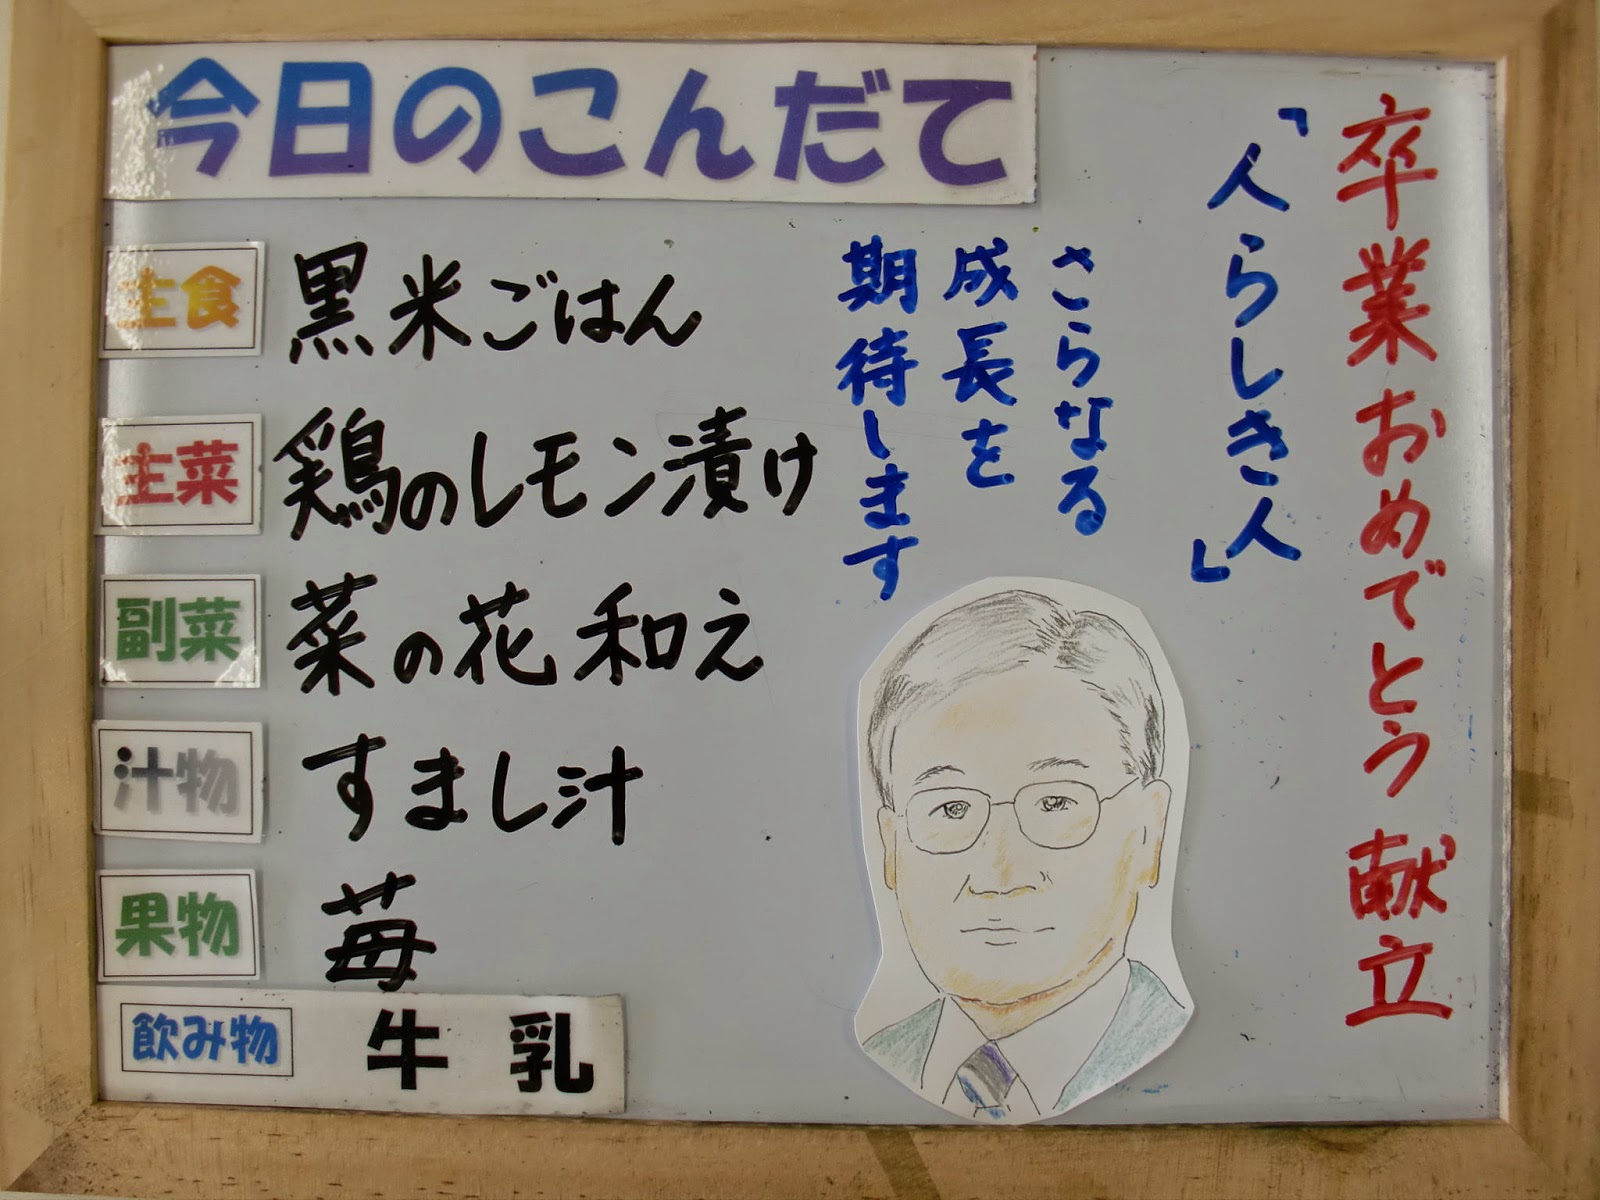 今日のこんだて
主食 黒米ごはん
主菜 鶏のレモン漬け
副菜 菜の花和え
汁物 すまし汁
果物 苺
飲み物 牛乳
卒業おめでとう献立
「人らしき人」
さらなる
成長を
期待します